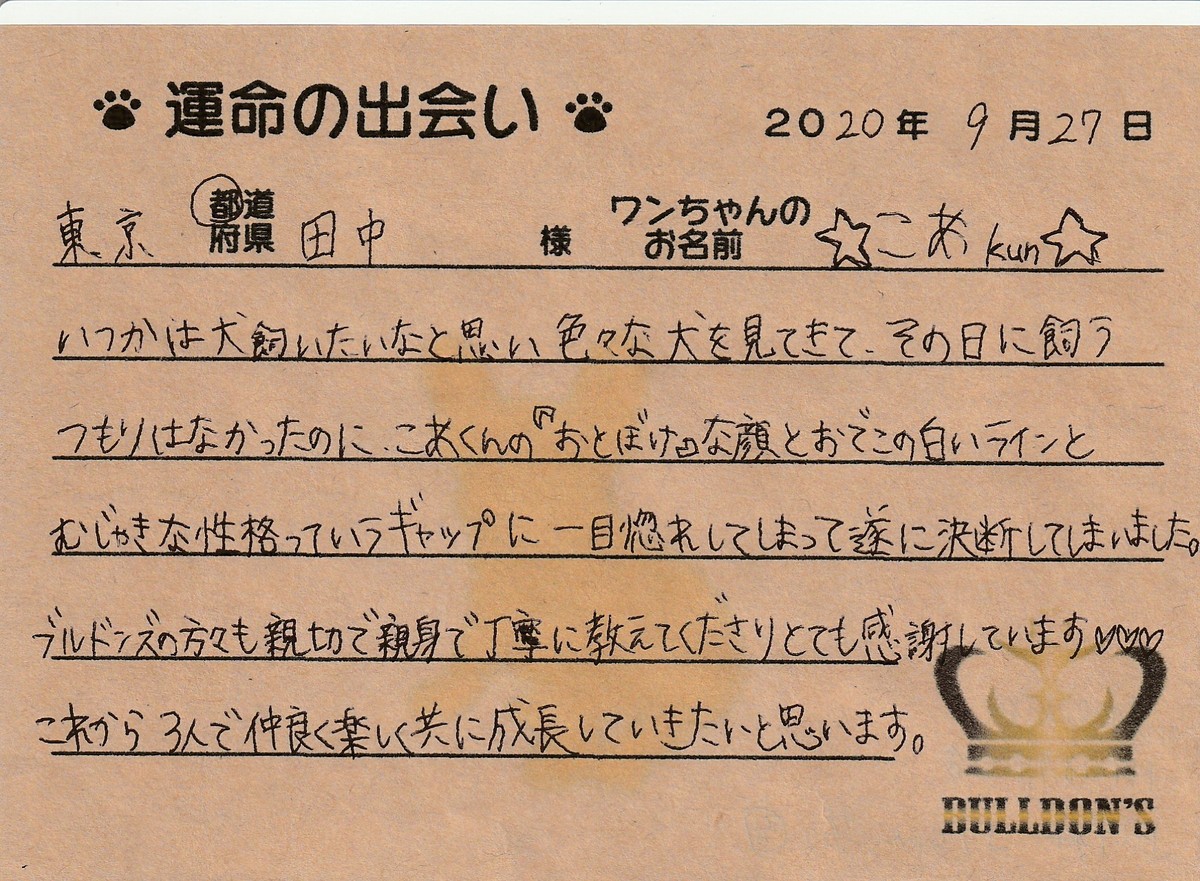 運命の出会い
2020年 9月27日
東京 都道府県 田中 様 ワンちゃんのお名前 ☆こあkun☆
いつかは犬飼いたいなと思い色々な犬を見てきて、その日に飼う
つもりはなかったのに、こあくんの『おとぼけ』な顔とおでこの白いラインと
むじゃきな性格っていうギャップに一目惚れしてしまって遂に決断してしまいました。
ブルドンズの方々も親切で親身で丁寧に教えてくださりとても感謝しています♡♡♡
これから3人で仲良く楽しく共に成長していきたいと思います。
BULLDON'S